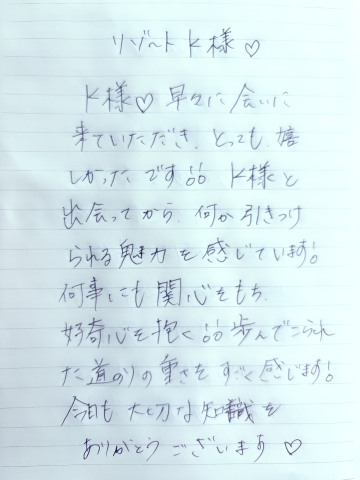 リゾート K様♡
K様♡ 早々に会いに
来ていただき、とっても、嬉
しかったです!! K様と
出会ってから、何か引きつけ
られる魅力を感じています!
何事にも関心をもち、
好奇心を抱く!! 歩んでこられ
た道のりの重さをすごく感じます!
今日も大切な知識を
ありがとうございます♡